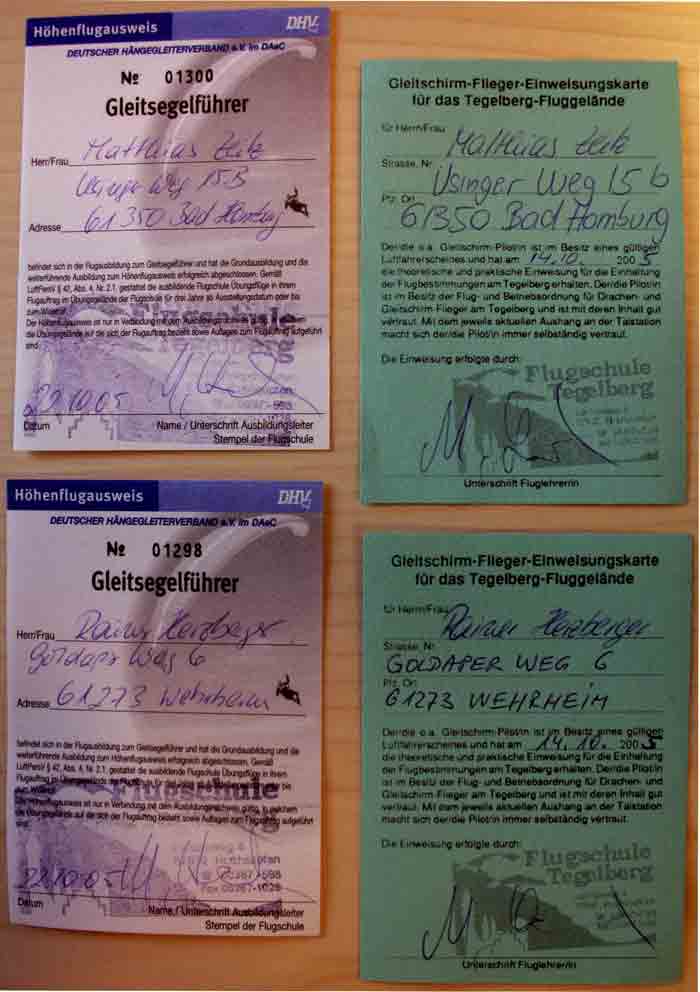 Höhenflugausweis DHV
DEUTSCHER HÄNGEGLEITERVERBAND e.V. im DAeC
№ 01300
Gleitsegelführer
Herr/Frau Matthias Zeitz
Usinger Weg 15B
Adresse 61350 Bad Homburg
befindet sich in der Flugausbildung zum Gleitsegelführer und hat die Grundausbildung und die
weiterführende Ausbildung zum Höhenflugausweis erfolgreich abgeschlossen. Gemäß
LuftPersV § 42, Abs. 4, Nr. 2.1, gestattet die ausbildende Flugschule Übungsflüge in ihrem
Flugauftrag im Übungsgelände der Flugschule für drei Jahre ab Ausstellungsdatum oder bis
zum Widerruf.
Der Höhenflugausweis ist nur in Verbindung mit dem
die Übungsgelände auf die sich der Flugauftrag bezieht sowie Auflagen zum Flugauftrag aufgeführt
sind.
Flugschule
22.10.05
Datum Name / Unterschrift Ausbildungsleiter
Stempel der Flugschule
Gleitschirm-Flieger-Einweisungskarte
für das Tegelberg-Fluggelände
für Herrn/Frau Matthias Zeitz
Strasse, Nr. Usinger Weg 15 b
Plz, Ort 61350 Bad Homburg
Der/die o.a. Gleitschirm-Pilot/in ist im Besitz eines gültigen
Luftfahrerscheines und hat am 14.10. 2005
die theoretische und praktische Einweisung für die Einhaltung
der Flugbestimmungen am Tegelberg erhalten. Der/die Pilot/in
ist im Besitz der Flug- und Betriebsordnung für Drachen- und
Gleitschirm-Flieger am Tegelberg und ist mit deren Inhalt gut
vertraut. Mit dem jeweils aktuellen Aushang an der Talstation
macht sich der/die Pilot/in immer selbständig vertraut.
Die Einweisung erfolgte durch:
Flugschule
Tegelberg
Unterschrift Fluglehrer/in
Höhenflugausweis DHV
DEUTSCHER HÄNGEGLEITERVERBAND e.V. im DAeC
№ 01298
Gleitsegelführer
Herr/Frau Rainer Herzberger
Goldaper Weg 6
Adresse 61273 Wehrheim
befindet sich in der Flugausbildung zum Gleitsegelführer und hat die Grundausbildung und die
weiterführende Ausbildung zum Höhenflugausweis erfolgreich abgeschlossen. Gemäß
LuftPersV § 42, Abs. 4, Nr. 2.1, gestattet die ausbildende Flugschule Übungsflüge in ihrem
Flugauftrag im Übungsgelände der Flugschule für drei Jahre ab Ausstellungsdatum oder bis
zum Widerruf.
Der Höhenflugausweis ist nur in Verbindung mit dem Ausbildungsnachweis gültig, in welchem
die Übungsgelände auf die sich der Flugauftrag bezieht sowie Auflagen zum Flugauftrag aufgeführt
sind.
Flugschule
22.10.05
Datum Name / Unterschrift Ausbildungsleiter
Stempel der Flugschule
Gleitschirm-Flieger-Einweisungskarte
für das Tegelberg-Fluggelände
für Herrn/Frau Rainer Herzberger
Strasse, Nr. GOLDAPER WEG 6
Plz, Ort 61273 WEHRHEIM
Der/die o.a. Gleitschirm-Pilot/in ist im Besitz eines gültigen
Luftfahrerscheines und hat am 14.10. 2005
die theoretische und praktische Einweisung für die Einhaltung
der Flugbestimmungen am Tegelberg erhalten. Der/die Pilot/in
ist im Besitz der Flug- und Betriebsordnung für Drachen- und
Gleitschirm-Flieger am Tegelberg und ist mit deren Inhalt gut
vertraut. Mit dem jeweils aktuellen Aushang an der Talstation
macht sich der/die Pilot/in immer selbständig vertraut.
Die Einweisung erfolgte durch:
Flugschule
Tegelberg
Unterschrift Fluglehrer/in